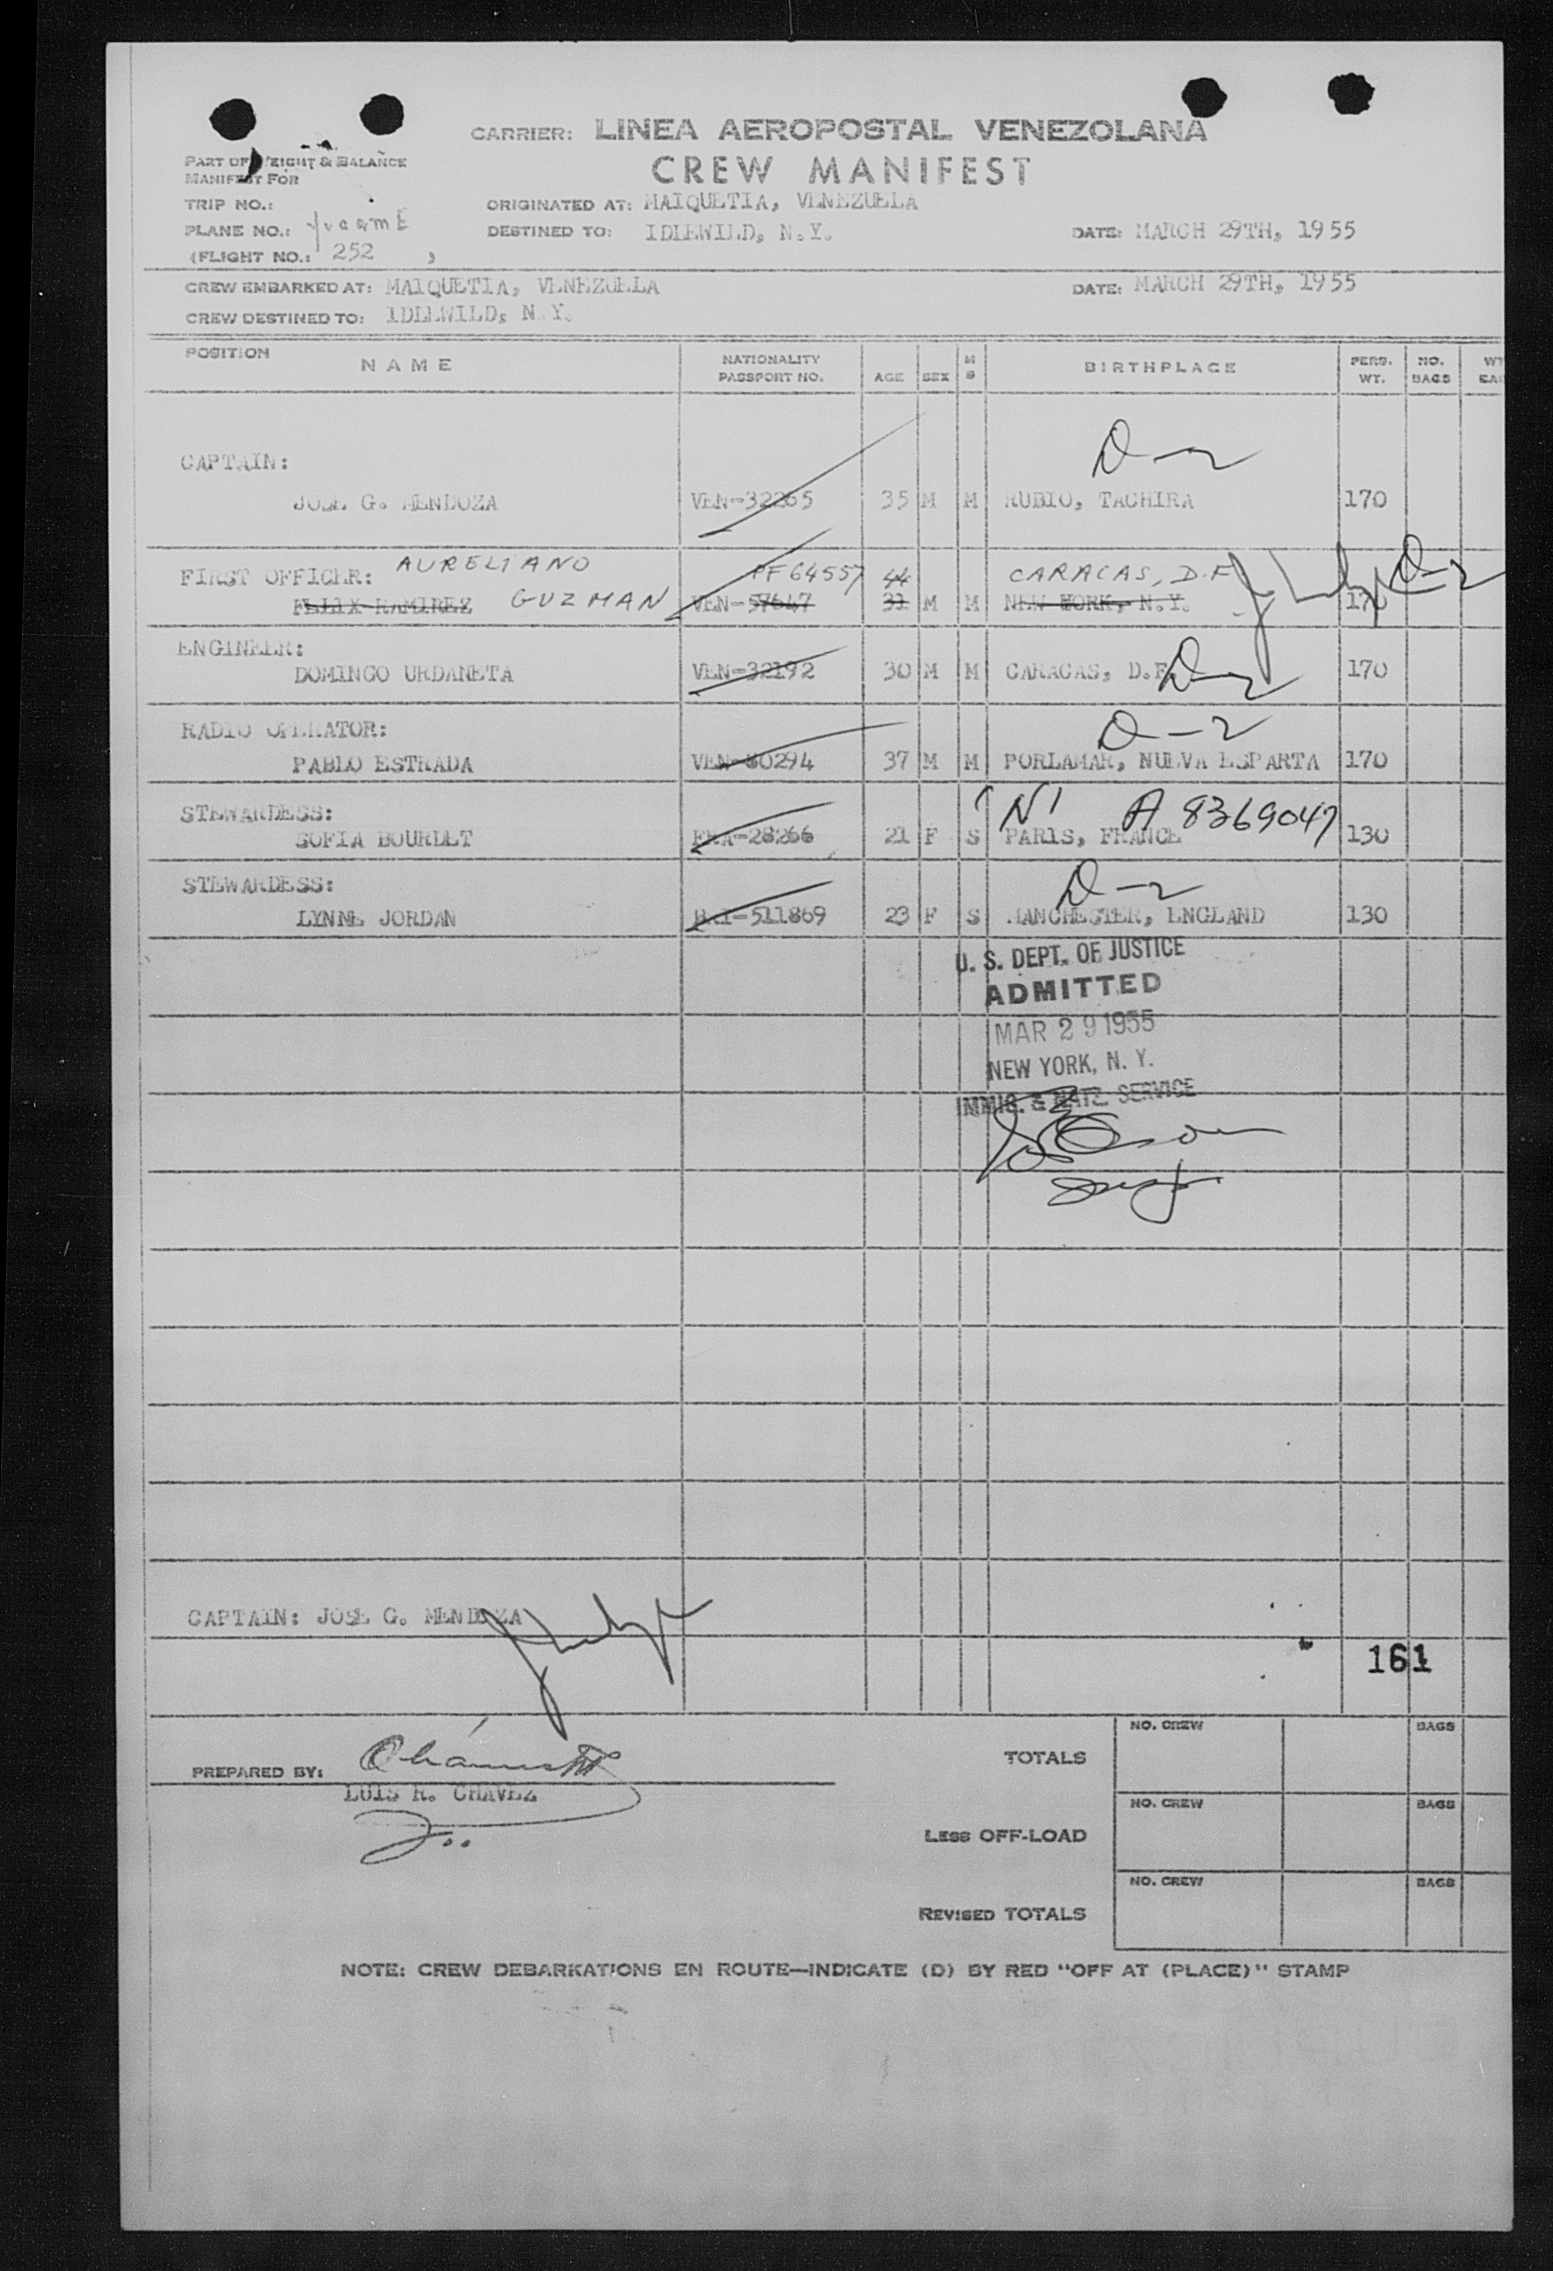 CARRIER: LINEA AEROPOSTAL VENEZOLANA
CREW MANIFEST
PART OF WEIGHT & BALANCE
MANIFEST FOR
TRIP NO.:
ORIGINATED AT: MAIQUETIA, VENEZUELA
PLANE NO.: YVCAME
DESTINED TO: IDLEWILD, N.Y.
DATE: MARCH 29TH, 1955
(FLIGHT NO.: 252 )
CREW EMBARKED AT: MAIQUETIA, VENEZUELA
DATE: MARCH 29TH, 1955
CREW DESTINED TO: IDLEWILD, N.Y.
POSITION NAME NATIONALITY PASSPORT NO. AGE SEX M S BIRTHPLACE PERS. WT. NO. BAGS WT
D-2
CAPTAIN:
JOSE G. MENDOZA VEN-32265 35 M M RUBIO, TACHIRA 170
FIRST OFFICER: AURELIANO PF64557 44 CARACAS, D.F. D-2
FELIX RAMIREZ GUZMAN VEN-57647 31 M M NEW YORK, N.Y. 170
ENGINEER:
DOMINGO URDANETA VEN-32192 30 M M CARACAS, D.F. D-2 170
RADIO OPERATOR: D-2
PABLO ESTRADA VEN-80294 37 M M PORLAMAR, NUEVA ESPARTA 170
STEWARDESS: A 8369047
SOFIA BOURDET FRA-28266 21 F S PARIS, FRANCE 130
STEWARDESS: D-2
LYNNE JORDAN BRI-511869 23 F S MANCHESTER, ENGLAND 130
U. S. DEPT. OF JUSTICE
ADMITTED
MAR 29 1955
NEW YORK, N. Y.
IMMIG. & NATZ. SERVICE
CAPTAIN: JOSE G. MENDOZA
161
NO. CREW BAGS
TOTALS
PREPARED BY:
LUIS R. CHAVEZ
NO. CREW BAGS
LESS OFF-LOAD
NO. CREW BAGS
REVISED TOTALS
NOTE: CREW DEBARKATIONS EN ROUTE—INDICATE (D) BY RED "OFF AT (PLACE)" STAMP